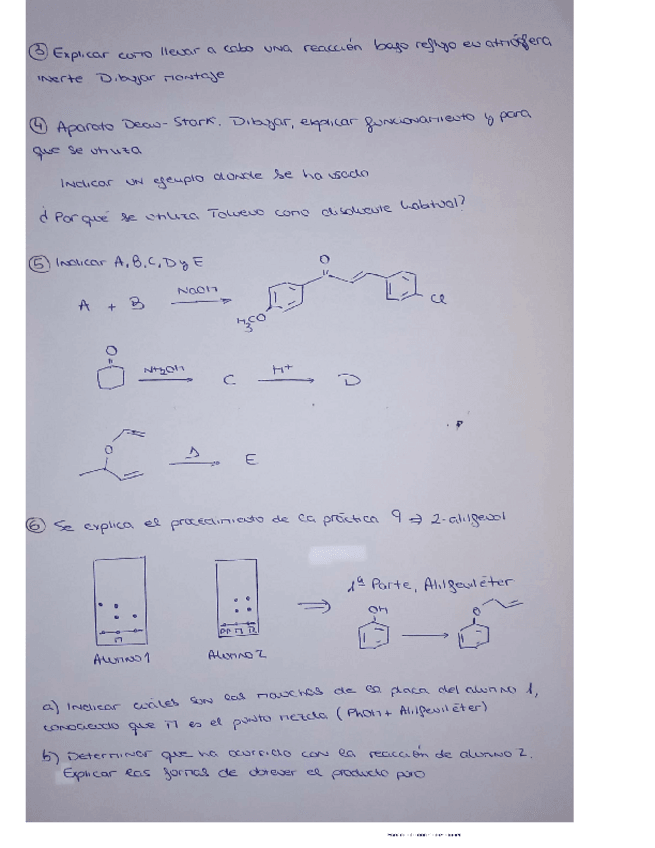 ③ Explicar como llevar a cabo una reacción bajo reflujo en atmósfera
inerte Dibujar montaje
④ Aparato Dean-Stark. Dibujar, explicar funcionamiento y para
que se utiliza
Indicar un ejemplo donde se ha usado
¿Por qué se utiliza Tolueno como disolvente habitual?
⑤ Indicar A, B, C, D y E
A + B NaOH O H₃CO Cl
O NH₂OH C H⁺ D
O Δ E
⑥ Se explica el procedimiento de la práctica 9 ⇒ 2-alilfenol
1ª Parte, Alilfeniléter
OH O
M
Alumno 1 Alumno 2
a) Indicar cuáles son las manchas de la placa del alumno 1,
conociendo que M es el punto mezcla (PhOH + Alilfeniléter)
b) Determinar que ha ocurrido con la reacción de alumno 2.
Explicar las formas de obtener el producto puro